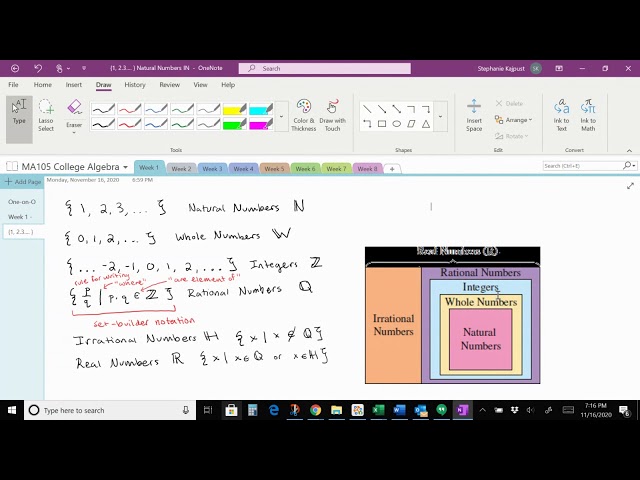 (1, 2.3.... ) Natural Numbers IN - OneNote
Search
Stephanie Kajpust
SK
File
Home
Insert
Draw
History
Review
View
Help
Type
Lasso Select
Eraser
Color & Thickness
Draw with Touch
Insert Space
Arrange
Rotate
Ink to Text
Ink to Math
MA105 College Algebra
Week 1
Week 2
Week 3
Week 4
Week 5
Week 6
Week 7
Week 8
+
Search (Ctrl+E)
+ Add Page
Monday, November 16, 2020 6:59 PM
One-on-O
Week 1 -
(1, 2.3....)
{ 1, 2, 3, ... } Natural Numbers ℕ
{ 0, 1, 2, ... } Whole Numbers 𝕎
{ ... -2, -1, 0, 1, 2, ... } Integers ℤ
rule for writing "where" "are element of"
{ p/q | p, q ∈ ℤ } Rational Numbers ℚ
set-builder notation
Irrational Numbers ℍ { x | x ∉ ℚ }
Real Numbers ℝ { x | x ∈ ℚ or x ∈ ℍ }
Real Numbers (ℝ)
Rational Numbers
Integers
Whole Numbers
Natural Numbers
Irrational Numbers
Type here to search
7:16 PM
11/16/2020